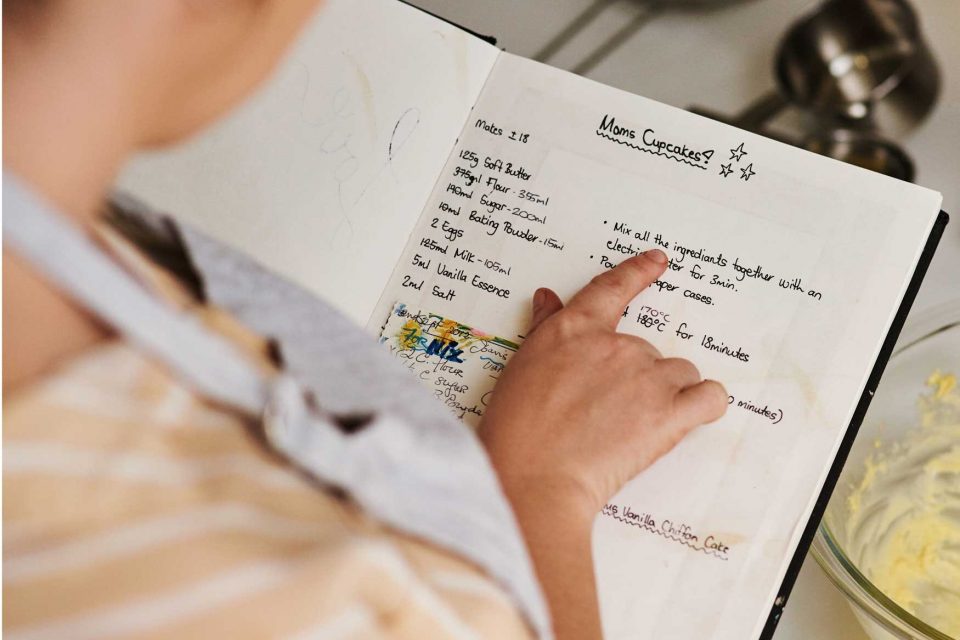 Moms Cupcakes!
Makes ± 18
125g Soft Butter
375ml Flour - 355ml
190ml Sugar - 200ml
10ml Baking Powder - 15ml
2 Eggs
125ml Milk - 105ml
5ml Vanilla Essence
2ml Salt
• Mix all the ingrediants together with an
electric ter for 3min.
• Po aper cases.
170°C
180°C for 18minutes
0 minutes)
Vanilla Chiffon Cake
Mix
Flour
Sugar